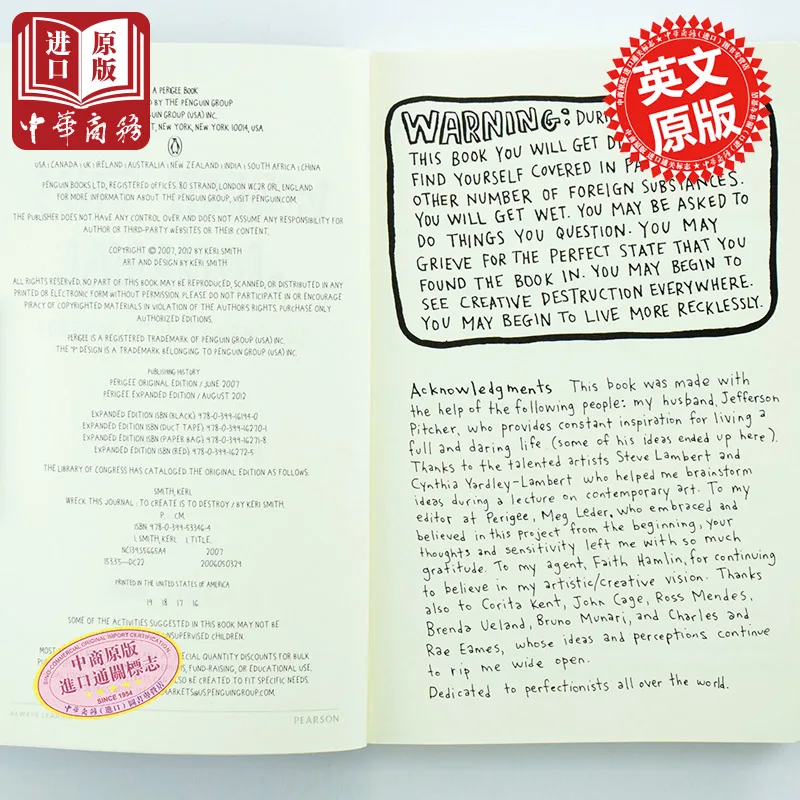 进口
原版
中華商務
A PERIGEE BOOK
ED BY THE PENGUIN GROUP
ENGUIN GROUP (USA) INC.
ET, NEW YORK, NEW YORK 10014, USA
USA | CANADA | UK | IRELAND | AUSTRALIA | NEW ZEALAND | INDIA | SOUTH AFRICA | CHINA
PENGUIN BOOKS LTD, REGISTERED OFFICES: 80 STRAND, LONDON WC2R 0RL, ENGLAND
FOR MORE INFORMATION ABOUT THE PENGUIN GROUP, VISIT PENGUIN.COM.
THE PUBLISHER DOES NOT HAVE ANY CONTROL OVER AND DOES NOT ASSUME ANY RESPONSIBILITY FOR
AUTHOR OR THIRD-PARTY WEBSITES OR THEIR CONTENT.
COPYRIGHT © 2007, 2012 BY KERI SMITH
ART AND DESIGN BY KERI SMITH
ALL RIGHTS RESERVED. NO PART OF THIS BOOK MAY BE REPRODUCED, SCANNED, OR DISTRIBUTED IN ANY
PRINTED OR ELECTRONIC FORM WITHOUT PERMISSION. PLEASE DO NOT PARTICIPATE IN OR ENCOURAGE
PIRACY OF COPYRIGHTED MATERIALS IN VIOLATION OF THE AUTHOR'S RIGHTS. PURCHASE ONLY
AUTHORIZED EDITIONS.
PERIGEE IS A REGISTERED TRADEMARK OF PENGUIN GROUP (USA) INC.
THE "P" DESIGN IS A TRADEMARK BELONGING TO PENGUIN GROUP (USA) INC.
PUBLISHING HISTORY
PERIGEE ORIGINAL EDITION / JUNE 2007
PERIGEE EXPANDED EDITION / AUGUST 2012
EXPANDED EDITION ISBN (BLACK) 978-0-399-16194-0
EXPANDED EDITION ISBN (DUCT TAPE) 978-0-399-16270-1
EXPANDED EDITION ISBN (PAPER BAG) 978-0-399-16271-8
EXPANDED EDITION ISBN (RED) 978-0-399-16272-5
THE LIBRARY OF CONGRESS HAS CATALOGED THE ORIGINAL EDITION AS FOLLOWS:
SMITH, KERI.
WRECK THIS JOURNAL : TO CREATE IS TO DESTROY / BY KERI SMITH.
P. CM.
ISBN 978-0-399-53346-4
I. SMITH, KERI. I. TITLE.
NC139.S665A4 2007
153.3'5—DC22 2006050329
PRINTED IN THE UNITED STATES OF AMERICA
19 18 17 16
SOME OF THE ACTIVITIES SUGGESTED IN THIS BOOK MAY NOT BE
UNSUPERVISED CHILDREN.
MOST
SPECIAL QUANTITY DISCOUNTS FOR BULK
S, FUND-RAISING, OR EDUCATIONAL USE.
LSO BE CREATED TO FIT SPECIFIC NEEDS.
MARKETS@US.PENGUINGROUP.COM.
ALWAYS LEARNING
PEARSON
中商原版
進口通關標志
SINCE 1954
英文
原版
WARNING: DURI
THIS BOOK YOU WILL GET DI
FIND YOURSELF COVERED IN PA
OTHER NUMBER OF FOREIGN SUBSTANCES.
YOU WILL GET WET. YOU MAY BE ASKED TO
DO THINGS YOU QUESTION. YOU MAY
GRIEVE FOR THE PERFECT STATE THAT YOU
FOUND THE BOOK IN. YOU MAY BEGIN TO
SEE CREATIVE DESTRUCTION EVERYWHERE.
YOU MAY BEGIN TO LIVE MORE RECKLESSLY.
Acknowledgments This book was made with
the help of the following people: my husband, Jefferson
Pitcher, who provides constant inspiration for living a
full and daring life (some of his ideas ended up here).
Thanks to the talented artists Steve Lambert and
Cynthia Yardley-Lambert who helped me brainstorm
ideas during a lecture on contemporary art. To my
editor at Perigee, Meg Leder, who embraced and
believed in this project from the beginning, your
thoughts and sensitivity left me with so much
gratitude. To my agent, Faith Hamlin, for continuing
to believe in my artistic/creative vision. Thanks
also to Corita Kent, John Cage, Ross Mendes,
Brenda Ueland, Bruno Munari, and Charles and
Rae Eames, whose ideas and perceptions continue
to rip me wide open.
Dedicated to perfectionists all over the world.